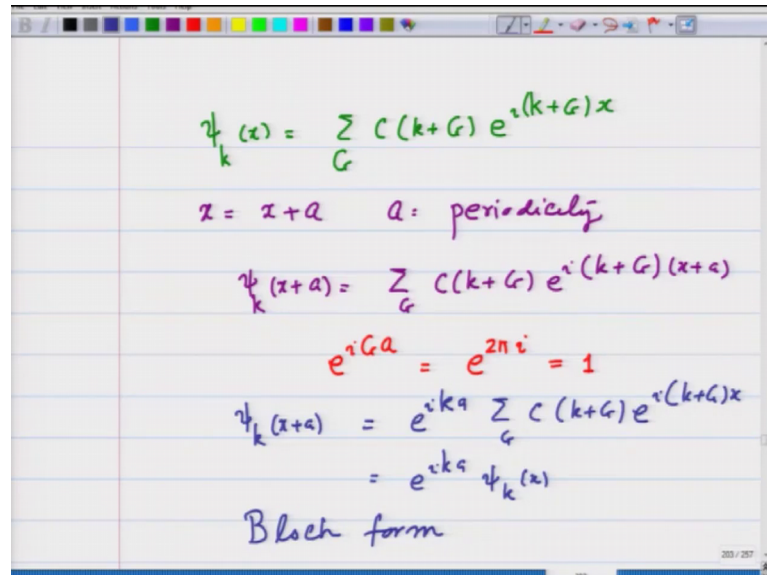 ψ_k (x) = Σ_G C(k+G) e^{i(k+G)x}
x = x+a a: periodicity
ψ_k (x+a) = Σ_G C(k+G) e^{i(k+G)(x+a)}
e^{iGa} = e^{2πi} = 1
ψ_k (x+a) = e^{ika} Σ_G C(k+G) e^{i(k+G)x}
= e^{ika} ψ_k (x)
Bloch form
203 / 257